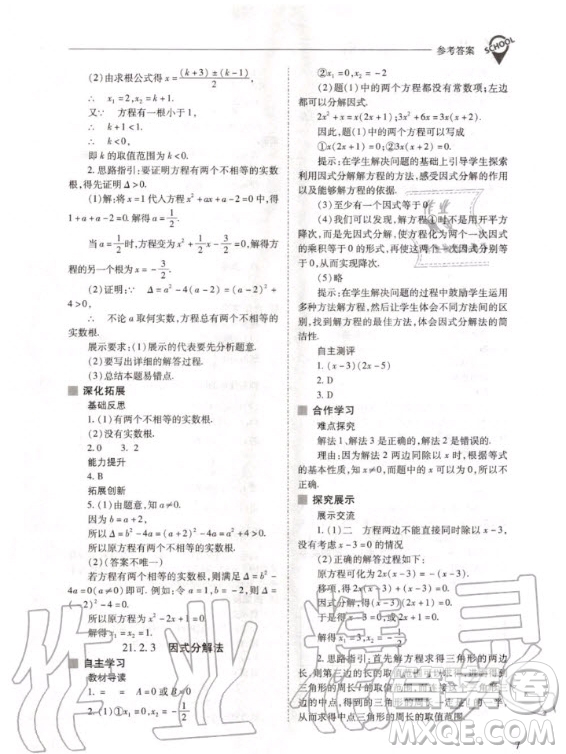 参考答案
SCHOOL
(2)由求根公式得 x=\frac{(k+3)±(k-1)}{2},
∴ x₁=2,x₂=k+1.
又∵ 方程有一根小于 1,
∴ k+1<1.
∴ k<0.
即 k 的取值范围为 k<0.
2.思路引导:要证明方程有两个不相等的实数
根,得先证明 Δ>0.
(1)解:将 x=1 代人方程 x²+ax+a-2=0 中,
得 a=\frac{1}{2}.
当 a=\frac{1}{2}时,方程变为 x²+\frac{1}{2}x-\frac{3}{2}=0,解得方
程的另一个根为 x=-\frac{3}{2}.
(2)证明:∵ Δ=a²-4(a-2)=(a-2)²
+4>0,
∴ 不论 a 取何实数,方程总有两个不相等的
实数根.
展示要求:(1)展示的代表要先分析题意.
(2)要写出详细的解答过程.
(3)总结本题易错点.
深化拓展
基础反思
1.(1)有两个不相等的实数根.
(2)没有实数根.
2.0 3.2
能力提升
4.B
拓展创新
5.(1)由题意,知 a≠0.
因为 b=a+2,
所以 Δ=b²-4a=(a+2)²-4a=a²+4>0.
所以原方程有两个不相等的实数根.
(2)(答案不唯一)
若方程有两个相等的实数根,则满足 Δ=b²-
4a=0(a≠0)即可.
例如:令 a=1,b=-2,
所以原方程为 x²-2x+1=0.
解得 x₁=x₂=1.
21.2.3 因式分解法
自主学习
教材导读
2.(1)①x₁=0,x₂=-\frac{1}{2}
②x₁=0,x₂=-2
(2)题(1)中的两个方程都没有常数项;左边
都可以分解因式.
2x²+x=x(2x+1);3x²+6x=3x(x+2).
因此,题(1)中的两个方程可以写成
①x(2x+1)=0;②3x(x+2)=0.
提示:在学生解决问题的基础上引导学生探索
利用因式分解解方程的方法,感受因式分解的作用
以及能够解方程的依据.
(3)至少有一个因式等于 0
(4)我们可以发现,解方程①时不是用开平方
降次,而是先因式分解,使方程化为两个一次因式
的乘积等于 0 的形式,再使这两个一次因式分别等
于 0,从而实现降次.
(5)略
提示:在学生解决问题的过程中鼓励学生运用
多种方法解方程,然后引导学生分析方法间的区
别,找到解方程的最佳方法,体会因式分解法的简
洁性.
自主测评
1.(x-3)(2x-5)
2.D
3.D
合作学习
难点探究
解法 1、解法 3 是正确的,解法 2 是错误的.
理由:因为解法 2 两边同除以 x 时,根据等式
的基本性质,知 x 不能为 0,所以解法 2 是错误的.
探究展示
展示交流
1.(1)二 方程两边不能直接同时除以 x-3,
没有考虑 x-3=0 的情况
(2)正确的解答过程如下:
原方程可化为 2x(x-3)=-(x-3).
移项,得 2x(x-3)+(x-3)=0.
因式分解,得(x-3)(2x+1)=0.
解得 x₁=3,x₂=-\frac{1}{2}.
2.思路引导:首先解方程求得三角形的两边
边的中点,得到的三角形的周长是
从而求得中点三角形的周长的取值范围.
作业精灵